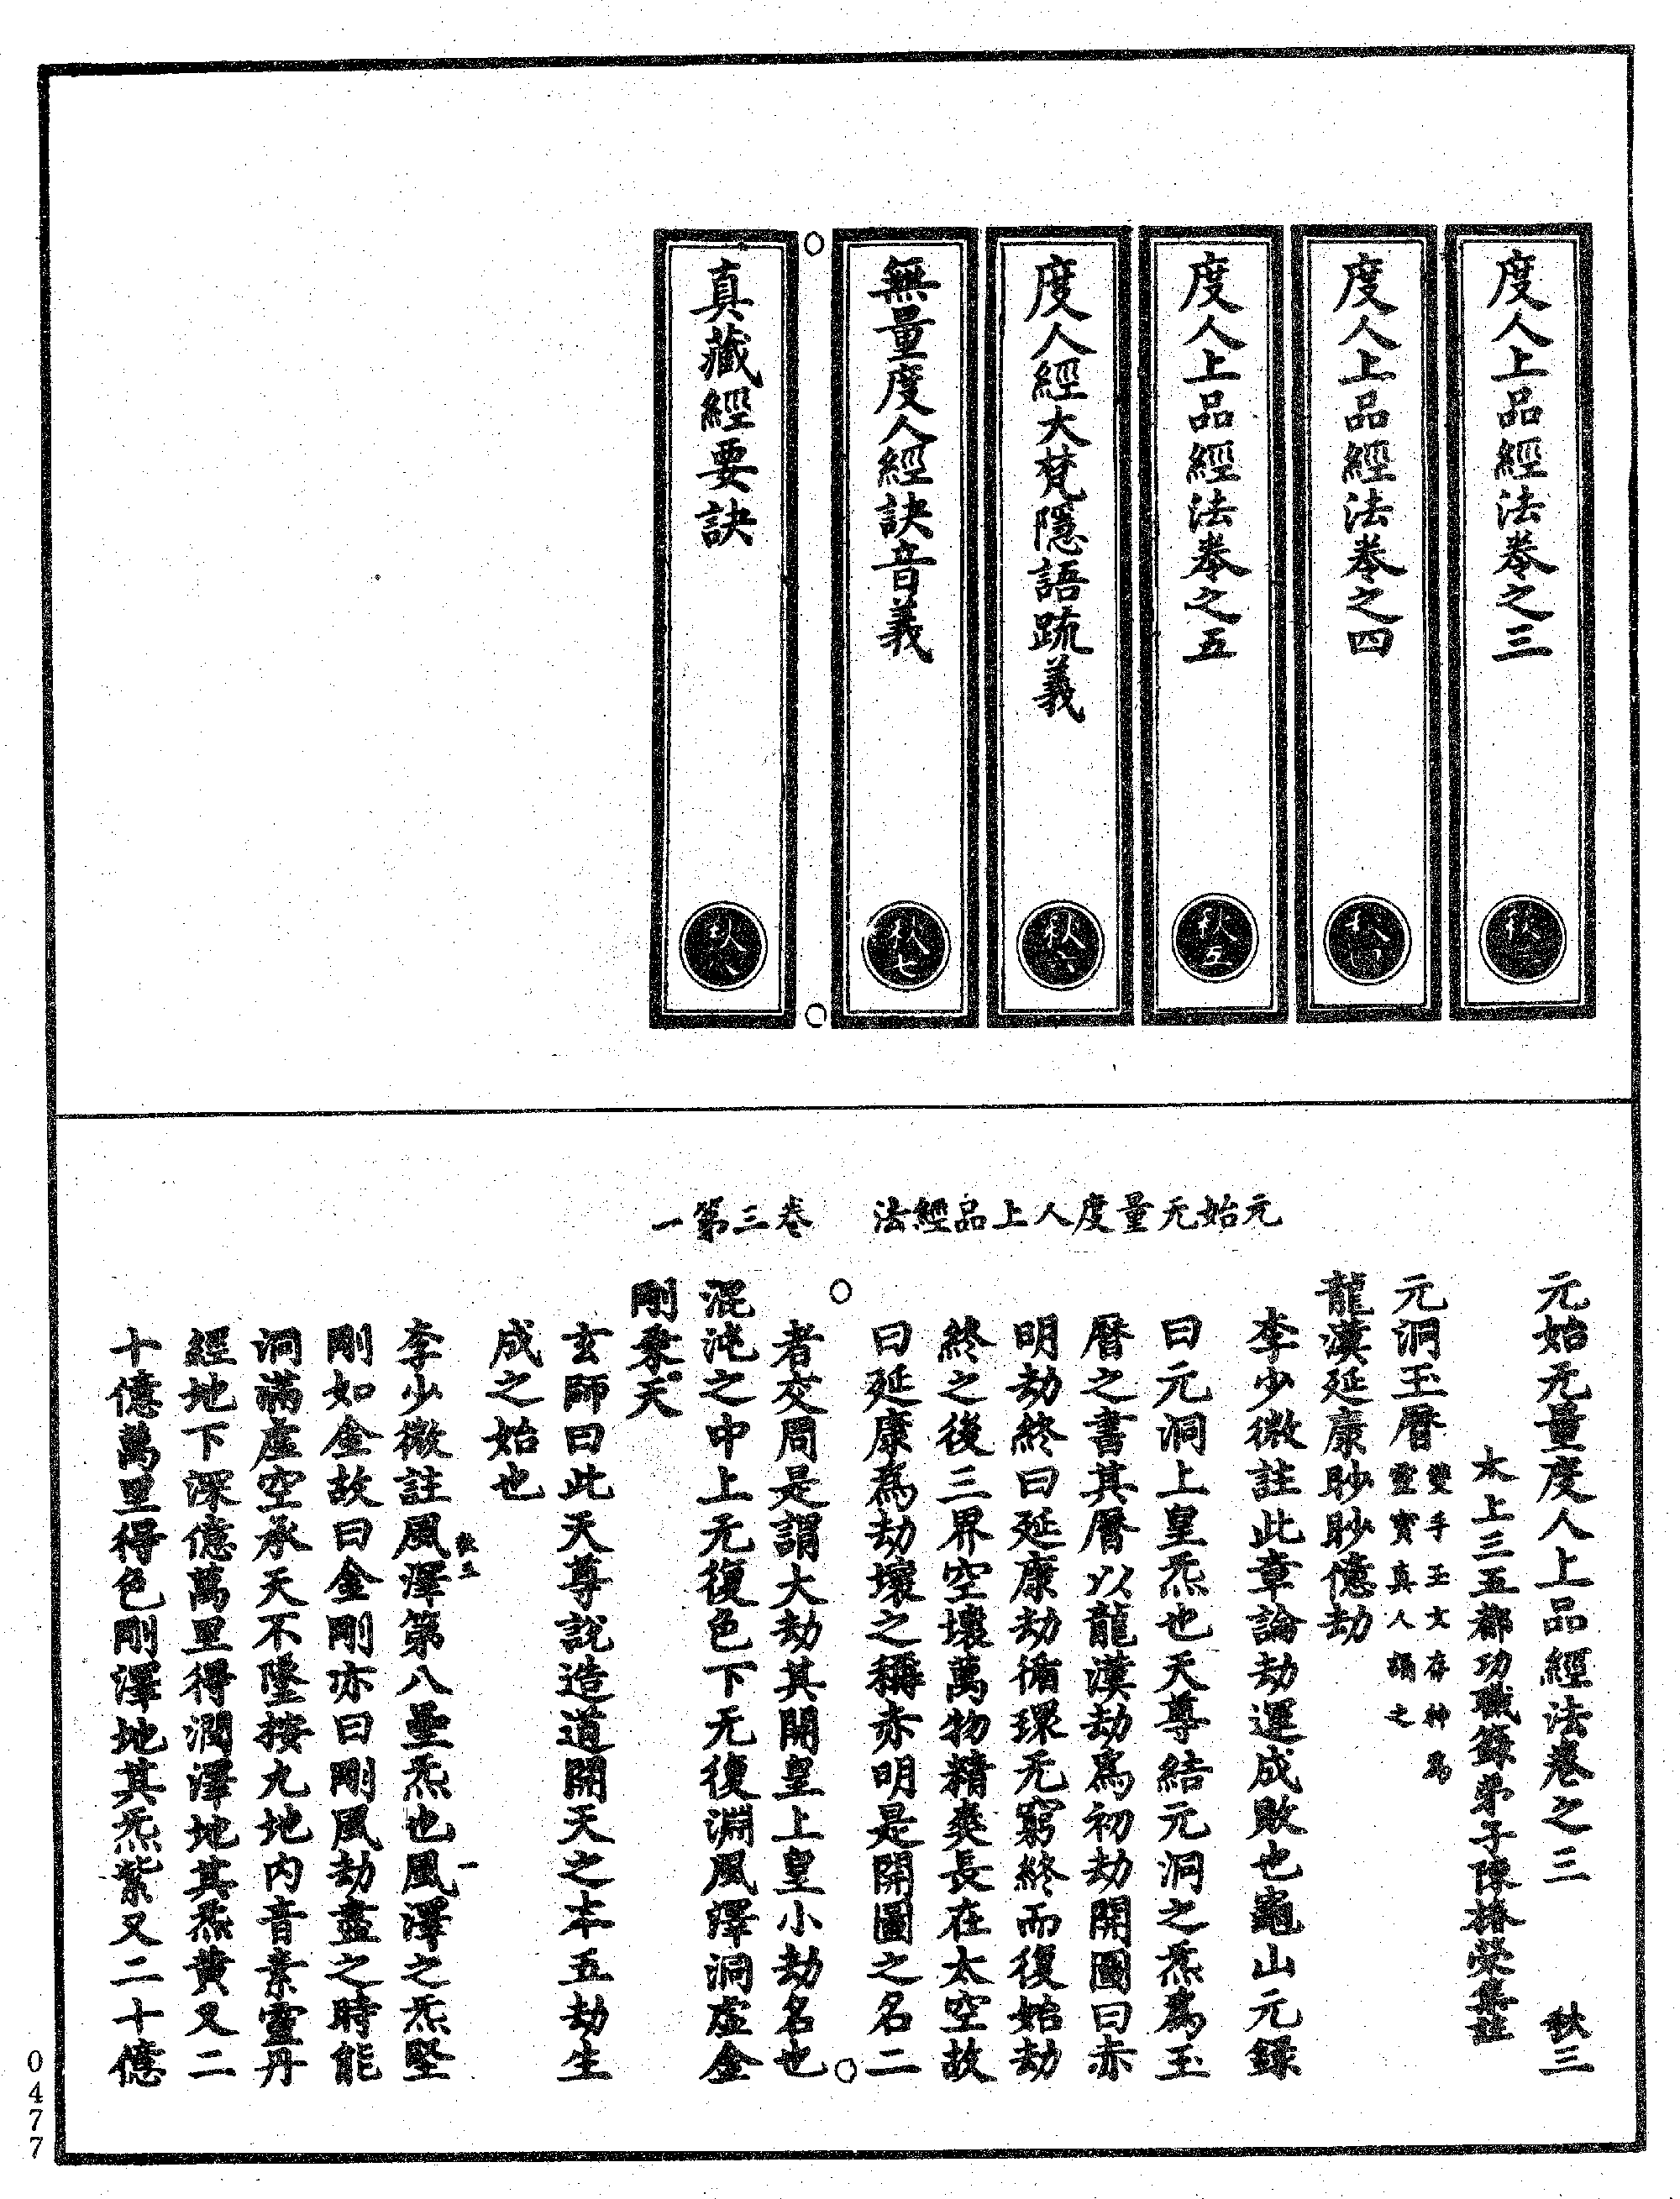 度人上品經法卷之三
秋三
度人上品經法卷之四
秋四
度人上品經法卷之五
秋五
度人經大梵隱語疏義
秋六
無量度人經訣音義
秋七
真藏經要訣
秋八
元始无量度人上品經法 卷三第一
元始无量度人上品經法卷之三 秋三
太上三五都功職籙弟子陳椿榮集註
元洞玉曆雙手玉文存神爲
靈寶真人誦之
龍漢延康眇眇億劫
李少微註此章論劫運成敗也龜山元錄
曰元洞上皇炁也天尊結元洞之炁爲玉
曆之書其曆以龍漢劫爲初劫開圖曰赤
明劫終曰延康劫循環无窮終而復始劫
終之後三界空壞萬物精爽長在太空故
曰延康爲劫壞之稱赤明是開圖之名二
者交周是謂大劫其開皇上皇小劫名也
混沌之中上无復色下无復淵風澤洞虛金
剛乘天
玄師曰此天尊說造道開天之本五劫生
成之始也
李少微註風澤第八壘炁也風澤之炁堅
秋三
一
剛如金故曰金剛亦曰剛風劫盡之時能
洞滿虛空承天不墜按九地內音素靈丹
經地下深億萬里得潤澤地其炁黃又二
十億萬里得色剛澤地其炁紫又二十億
0477